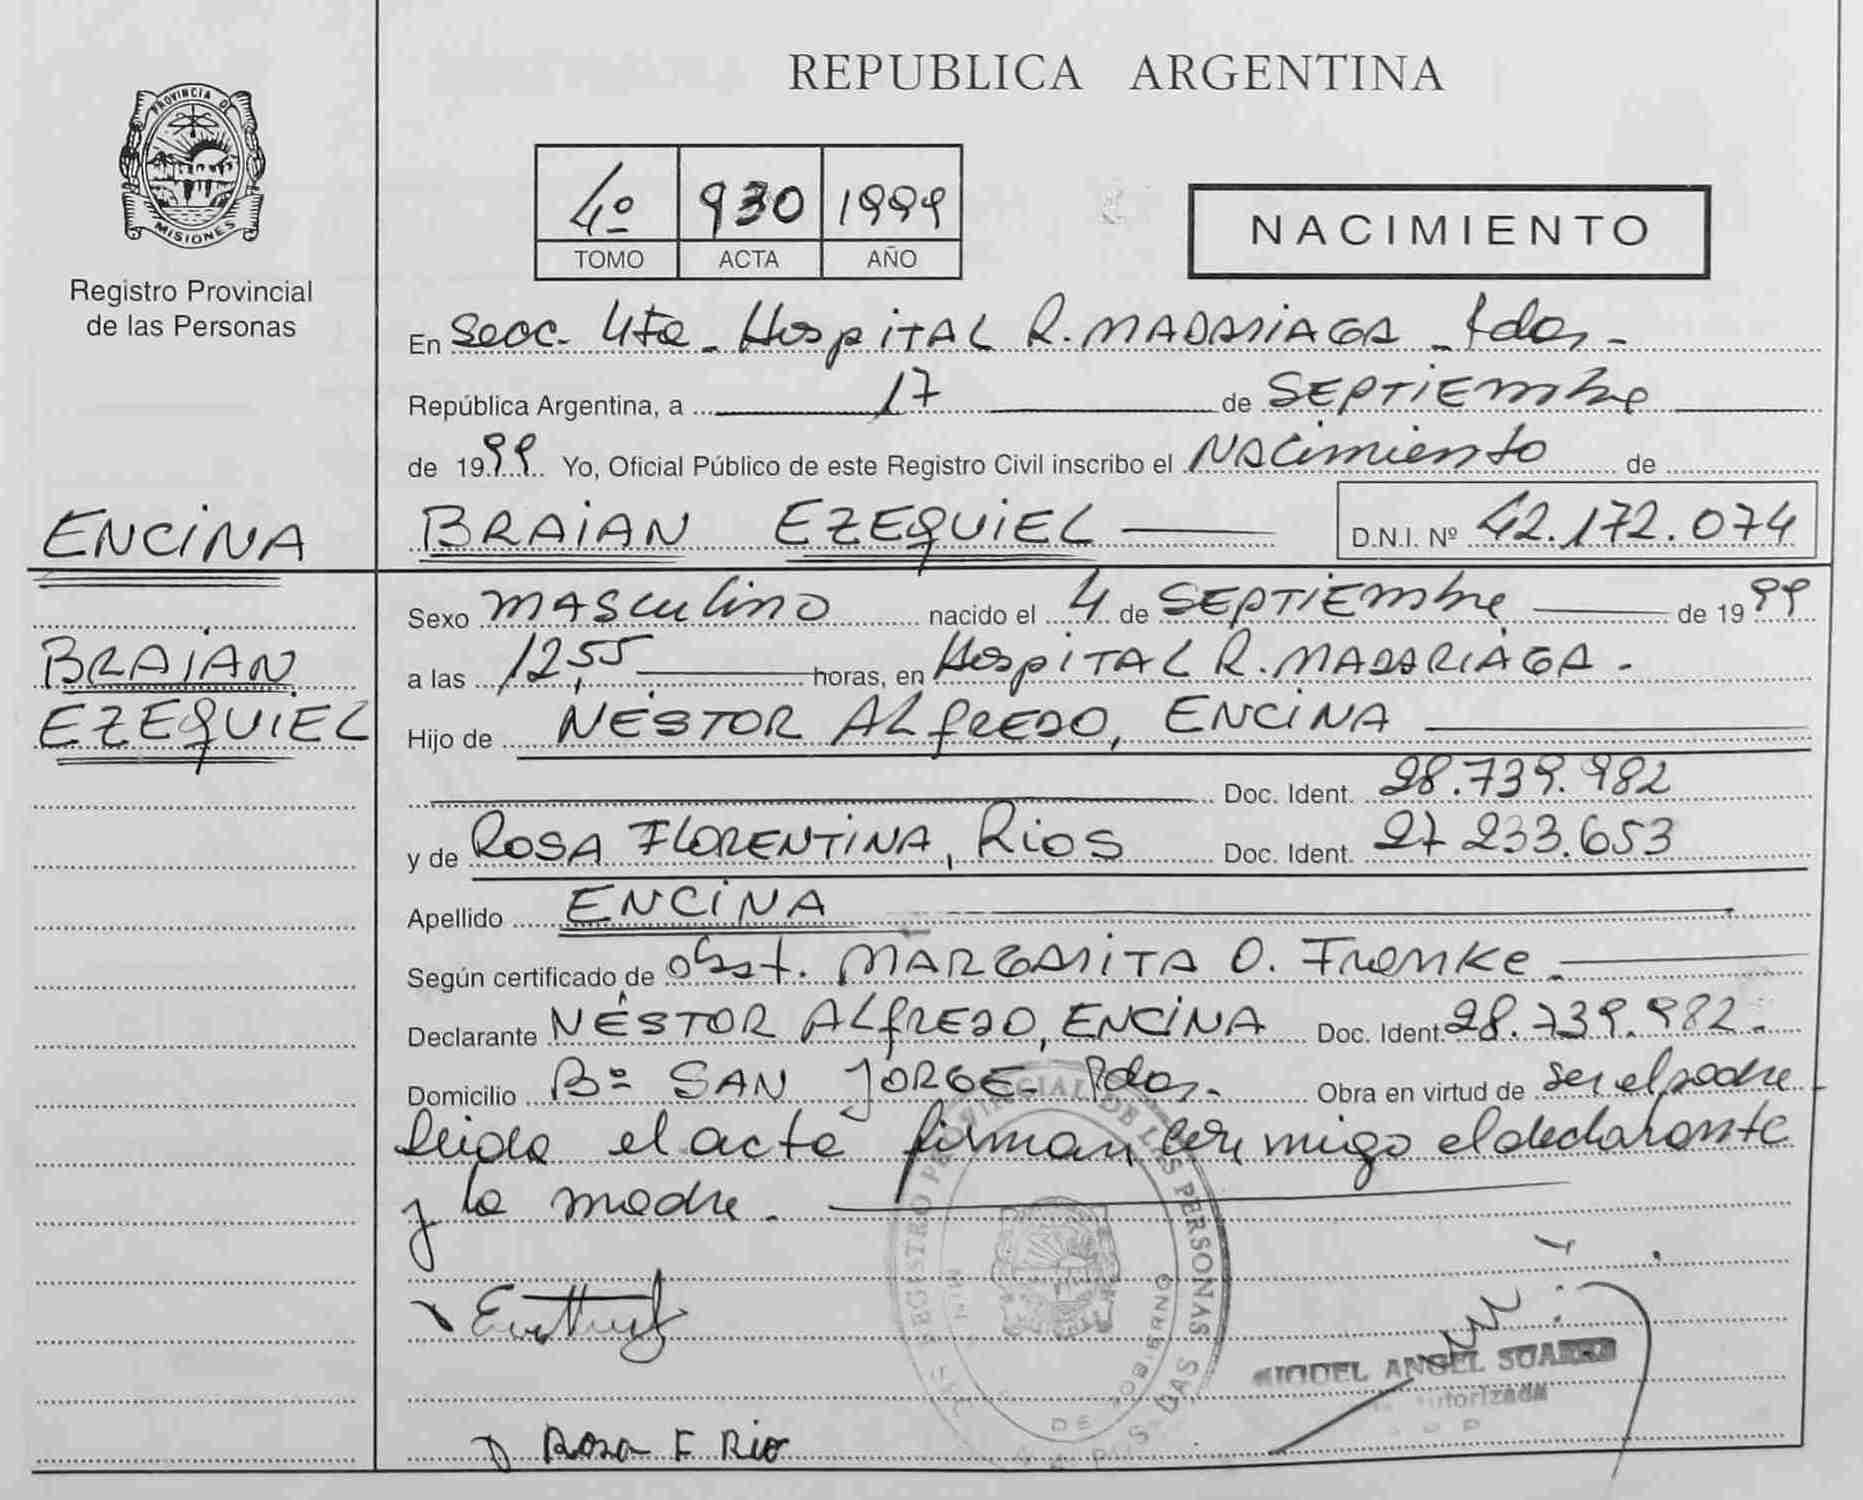 REPUBLICA ARGENTINA
PROVINCIA D
MISIONES
Registro Provincial
de las Personas
4º 930 1999
TOMO ACTA AÑO
NACIMIENTO
En Secc. 4ta - Hospital R. MADARIAGA - Pdas -
República Argentina, a 17 de SEPTiEmbre
de 1999 Yo, Oficial Público de este Registro Civil inscribo el NAcimiento de
ENCiNA
BRAiAN EZEQUiEL D.N.I. Nº 42.172.074
BRAiAN
EZEQUiEL
Sexo mASculino nacido el 4 de SEPTiEmbre de 1999
a las 12,55 horas, en HospiTAL R. MADARIAGA -
Hijo de NÉSTOR ALfREDO, ENCiNA
Doc. Ident. 28.739.982
y de ROSA FLORENTiNA, RiOS Doc. Ident. 27 233.653
Apellido ENCiNA
Según certificado de obst. MARGARiTA O. Franke -
Declarante NÉSTOR ALfREDO, ENCiNA Doc. Ident. 28.739.982 -
Domicilio Bº SAN JORGE - Pdas - Obra en virtud de ser el padre -
leida el acta firman conmigo el declarante
y la madre -
REGISTRO PROVINCIAL DE LAS PERSONAS
DE GOBIERNO
MIGUEL ANGEL SUAREZ
Autorizada
Rosa F Rio